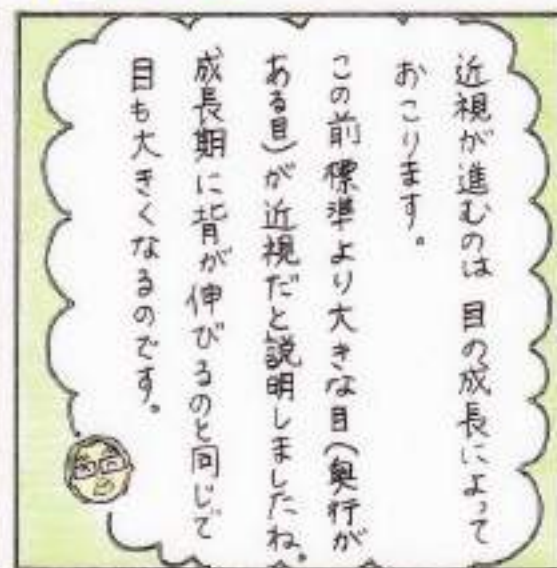 近視が進むのは 目の成長によって
おこります。
この前標準より大きな目(奥行が
ある目)が近視だと説明しましたね。
成長期に背が伸びるのと同じで
目も大きくなるのです。